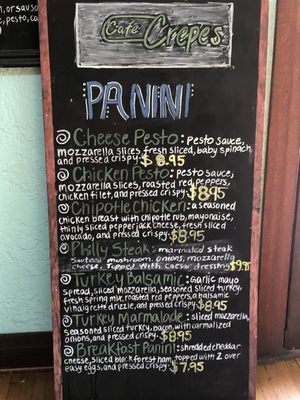 , or sausa
, pesto, ca
Café
Crepes
PANINI
Cheese Pesto: pesto sauce,
mozzarella slices, fresh sliced, baby spinach,
and pressed crispy $8.95
Chicken Pesto: pesto sauce,
mozzarella slices, roasted red peppers,
chicken filet, and pressed crispy $8.95
Chipotle Chicken: a seasoned
chicken breast with chipotle rub, mayonaise,
thinly sliced pepperjack cheese, fresh sliced
avocado, and pressed crispy $8.95
Philly Steak: marinated steak
sauteed mushroom, onions, mozzarella
cheese, topped with caesar dressing $9.95
Turkey Balsamic: garlic mayo
spread, sliced mozzarella, seasoned sliced turkey,
fresh spring mix, roasted red peppers, balsamic
vinaigrette drizzle, and pressed crispy $8.95
Turkey Marmalade: sliced mozzarella,
seasoned sliced turkey, bacon, with carmalized
onions, and pressed crispy. $8.95
Breakfast Panini: shredded cheddar
cheese, sliced black forest ham, topped with 2 over
easy eggs, and pressed crispy $7.95